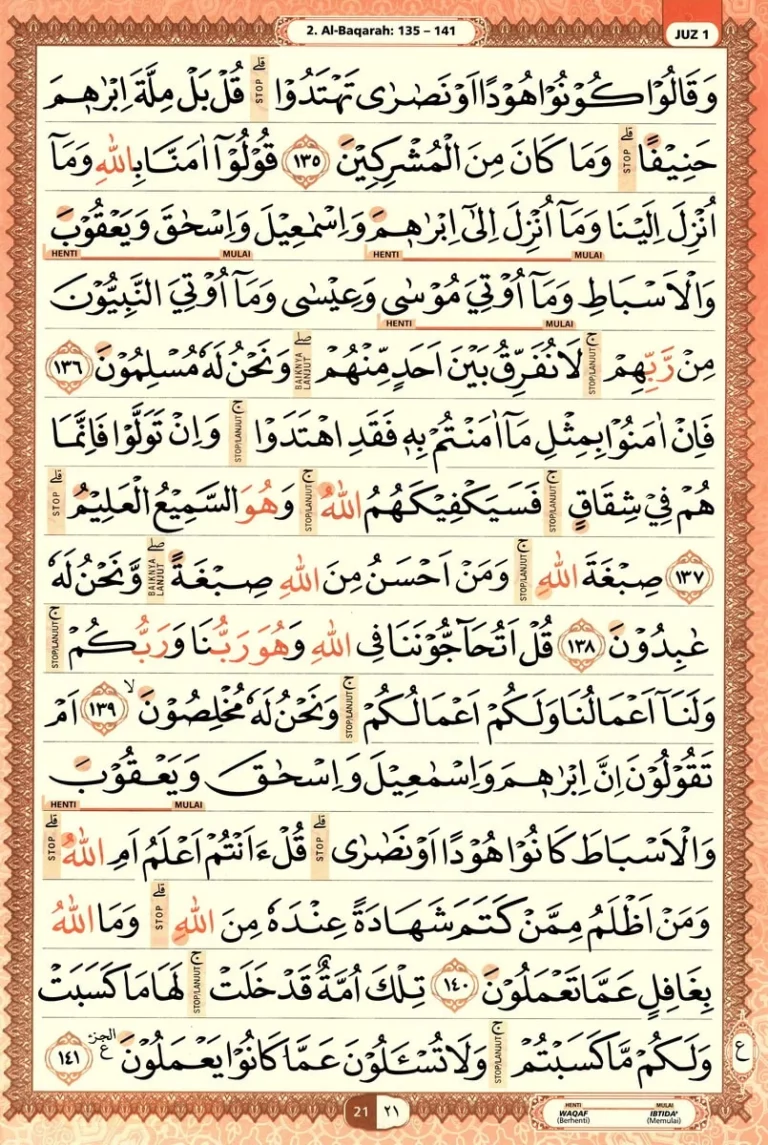 2. Al-Baqarah: 135 – 141
JUZ 1
وَقَالُوْا كُوْنُوْا هُوْدًا اَوْ نَصٰرٰى تَهْتَدُوْا ۗ قُلْ بَلْ مِلَّةَ اِبْرٰهٖمَ
STOP
حَنِيْفًا ۗ وَمَا كَانَ مِنَ الْمُشْرِكِيْنَ ١٣٥ قُوْلُوْٓا اٰمَنَّا بِاللّٰهِ وَمَآ
STOP
اُنْزِلَ اِلَيْنَا وَمَآ اُنْزِلَ اِلٰٓى اِبْرٰهٖمَ وَاِسْمٰعِيْلَ وَاِسْحٰقَ وَيَعْقُوْبَ
MULAI HENTI MULAI HENTI
وَالْاَسْبَاطِ وَمَآ اُوْتِيَ مُوْسٰى وَعِيْسٰى وَمَآ اُوْتِيَ النَّبِيُّوْنَ
MULAI HENTI
مِنْ رَّبِّهِمْ ۚ لَا نُفَرِّقُ بَيْنَ اَحَدٍ مِّنْهُمْ ۖ وَنَحْنُ لَهٗ مُسْلِمُوْنَ ١٣٦
STOP/LANJUT BAIKNYA LANJUT
فَاِنْ اٰمَنُوْا بِمِثْلِ مَآ اٰمَنْتُمْ بِهٖ فَقَدِ اهْتَدَوْا ۚ وَاِنْ تَوَلَّوْا فَاِنَّمَا
STOP/LANJUT
هُمْ فِيْ شِقَاقٍ ۚ فَسَيَكْفِيْكَهُمُ اللّٰهُ ۚ وَهُوَ السَّمِيْعُ الْعَلِيْمُ ۗ
STOP/LANJUT STOP/LANJUT STOP
١٣٧ صِبْغَةَ اللّٰهِ ۚ وَمَنْ اَحْسَنُ مِنَ اللّٰهِ صِبْغَةً ۖ وَّنَحْنُ لَهٗ
STOP/LANJUT BAIKNYA LANJUT
عٰبِدُوْنَ ١٣٨ قُلْ اَتُحَاۤجُّوْنَنَا فِى اللّٰهِ وَهُوَ رَبُّنَا وَرَبُّكُمْ ۚ
STOP/LANJUT
وَلَنَآ اَعْمَالُنَا وَلَكُمْ اَعْمَالُكُمْ ۚ وَنَحْنُ لَهٗ مُخْلِصُوْنَ ۙ ١٣٩ اَمْ
STOP/LANJUT
تَقُوْلُوْنَ اِنَّ اِبْرٰهٖمَ وَاِسْمٰعِيْلَ وَاِسْحٰقَ وَيَعْقُوْبَ
MULAI HENTI
وَالْاَسْبَاطَ كَانُوْا هُوْدًا اَوْ نَصٰرٰى ۗ قُلْ ءَاَنْتُمْ اَعْلَمُ اَمِ اللّٰهُ ۗ
STOP STOP
وَمَنْ اَظْلَمُ مِمَّنْ كَتَمَ شَهَادَةً عِنْدَهٗ مِنَ اللّٰهِ ۗ وَمَا اللّٰهُ
STOP
بِغَافِلٍ عَمَّا تَعْمَلُوْنَ ١٤٠ تِلْكَ اُمَّةٌ قَدْ خَلَتْ ۚ لَهَا مَا كَسَبَتْ
STOP/LANJUT
وَلَكُمْ مَّا كَسَبْتُمْ ۚ وَلَا تُسْـَٔلُوْنَ عَمَّا كَانُوْا يَعْمَلُوْنَ ۔ ١٤١
STOP/LANJUT
الجزء ع
ع
21 ٢١
HENTI MULAI
WAQAF IBTIDA'
(Berhenti) (Memulai)